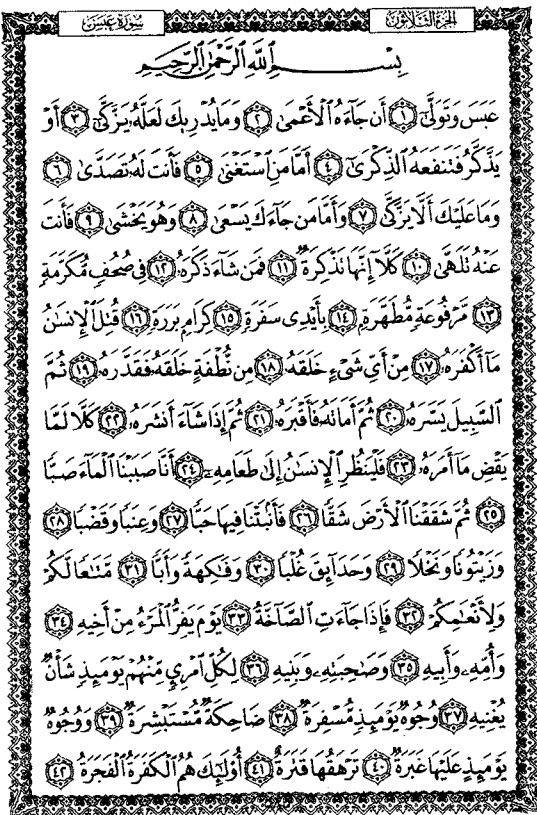 الجزء الثلاثون سورة عبس
بِسْمِ ٱللَّهِ ٱلرَّحْمَٰنِ ٱلرَّحِيمِ
عَبَسَ وَتَوَلَّىٰٓ ١ أَن جَآءَهُ ٱلْأَعْمَىٰ ٢ وَمَا يُدْرِيكَ لَعَلَّهُۥ يَزَّكَّىٰٓ ٣ أَوْ
يَذَّكَّرُ فَتَنفَعَهُ ٱلذِّكْرَىٰٓ ٤ أَمَّا مَنِ ٱسْتَغْنَىٰ ٥ فَأَنتَ لَهُۥ تَصَدَّىٰ ٦
وَمَا عَلَيْكَ أَلَّا يَزَّكَّىٰ ٧ وَأَمَّا مَن جَآءَكَ يَسْعَىٰ ٨ وَهُوَ يَخْشَىٰ ٩ فَأَنتَ
عَنْهُ تَلَهَّىٰ ١٠ كَلَّآ إِنَّهَا تَذْكِرَةٌ ١١ فَمَن شَآءَ ذَكَرَهُۥ ١٢ فِى صُحُفٍ مُّكَرَّمَةٍ
١٣ مَّرْفُوعَةٍ مُّطَهَّرَةٍۭ ١٤ بِأَيْدِى سَفَرَةٍ ١٥ كِرَامٍۭ بَرَرَةٍ ١٦ قُتِلَ ٱلْإِنسَٰنُ
مَآ أَكْفَرَهُۥ ١٧ مِنْ أَىِّ شَىْءٍ خَلَقَهُۥ ١٨ مِن نُّطْفَةٍ خَلَقَهُۥ فَقَدَّرَهُۥ ١٩ ثُمَّ
ٱلسَّبِيلَ يَسَّرَهُۥ ٢٠ ثُمَّ أَمَاتَهُۥ فَأَقْبَرَهُۥ ٢١ ثُمَّ إِذَا شَآءَ أَنشَرَهُۥ ٢٢ كَلَّا لَمَّا
يَقْضِ مَآ أَمَرَهُۥ ٢٣ فَلْيَنظُرِ ٱلْإِنسَٰنُ إِلَىٰ طَعَامِهِۦٓ ٢٤ أَنَّا صَبَبْنَا ٱلْمَآءَ صَبًّا
٢٥ ثُمَّ شَقَقْنَا ٱلْأَرْضَ شَقًّا ٢٦ فَأَنۢبَتْنَا فِيهَا حَبًّا ٢٧ وَعِنَبًا وَقَضْبًا ٢٨
وَزَيْتُونًا وَنَخْلًا ٢٩ وَحَدَآئِقَ غُلْبًا ٣٠ وَفَٰكِهَةً وَأَبًّا ٣١ مَّتَٰعًا لَّكُمْ
وَلِأَنْعَٰمِكُمْ ٣٢ فَإِذَا جَآءَتِ ٱلصَّآخَّةُ ٣٣ يَوْمَ يَفِرُّ ٱلْمَرْءُ مِنْ أَخِيهِ ٣٤
وَأُمِّهِۦ وَأَبِيهِ ٣٥ وَصَٰحِبَتِهِۦ وَبَنِيهِ ٣٦ لِكُلِّ ٱمْرِئٍ مِّنْهُمْ يَوْمَئِذٍ شَأْنٌ
يُغْنِيهِ ٣٧ وُجُوهٌ يَوْمَئِذٍ مُّسْفِرَةٌ ٣٨ ضَاحِكَةٌ مُّسْتَبْشِرَةٌ ٣٩ وَوُجُوهٌ
يَوْمَئِذٍ عَلَيْهَا غَبَرَةٌ ٤٠ تَرْهَقُهَا قَتَرَةٌ ٤١ أُو۟لَٰٓئِكَ هُمُ ٱلْكَفَرَةُ ٱلْفَجَرَةُ ٤٢